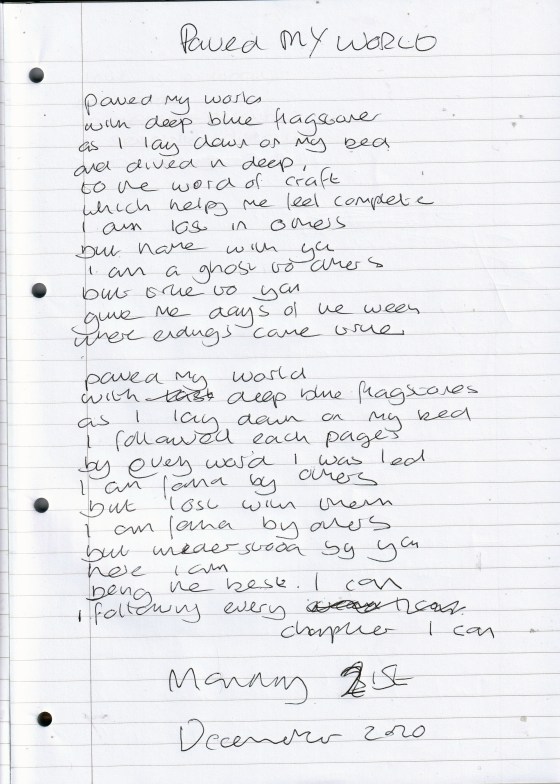 PAVED MY WORLD
paved my world
with deep blue flagstones
as I lay down on my bed
and dived in deep,
to the word of craft
which helps me feel complete
I am lost in others
but home with you
I am a ghost to others
but true to you
give me days of the week
where endings came true
paved my world
with deep blue flagstones
as I lay down on my bed
I followed each pages
by every word I was led
I am found by others
but lost with them
I am found by others
but understood by you
here I am
being the best. I can
following every
chapter I can
Monday 21st
December 2020